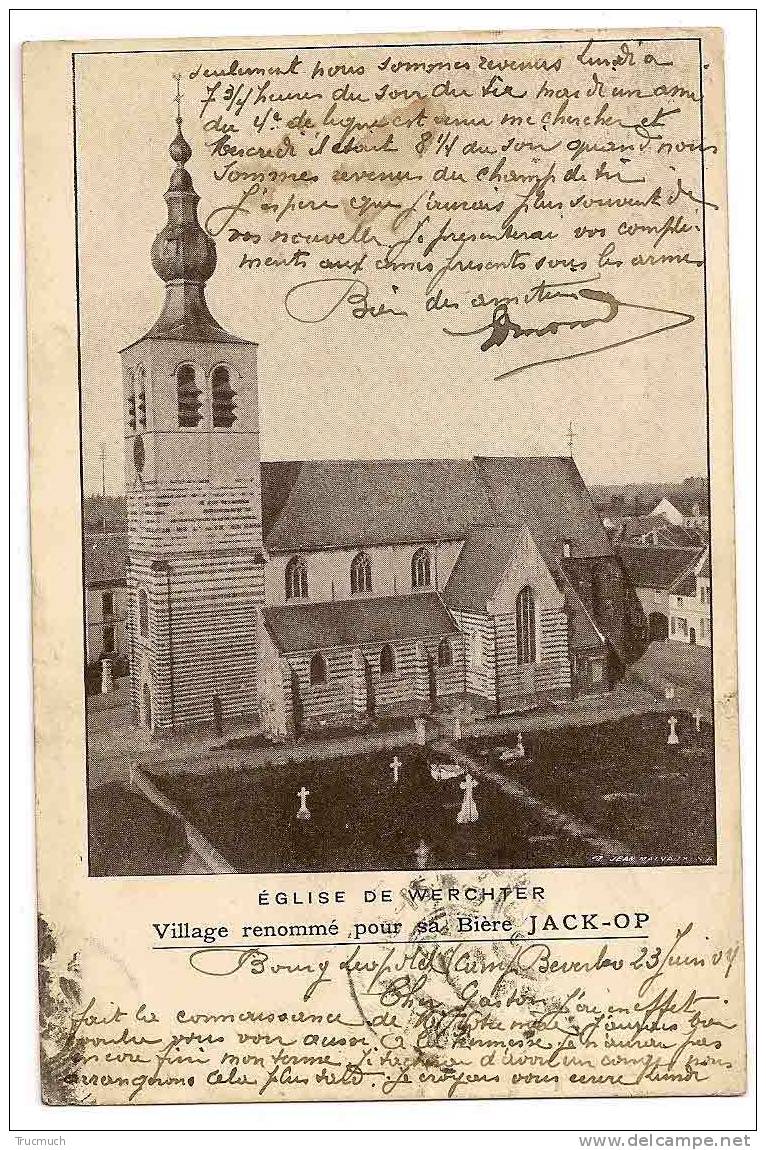 seulement nous sommes revenus lundi a
7 3/4 heures du soir du tir mardi un ami
du 4e de ligne est venu me chercher et
Mercredi il était 8 1/4 du soir quand nous
sommes revenus du champ de tir
J'espère que j'aurais plus souvent de
vos nouvelle. Je presenterai vos compli-
ments aux amis presents sous les armes
Bien des amitiés
ÉGLISE DE WERCHTER
Village renommé pour sa Bière JACK-OP
Bourg Leopold (Camp Beverloo 23 Juin 04
Cher Gaston J'ai en effet
fait la connaissance de j'aurais bien
voulu vous voir aussi. A la kermesse je n'aurai pas
encore fini mon terme. d'avoir un congé nous
arrangerons cela plus tard. Je croyais vous écrire lundi
Trucmuch
http://www.delcampe.net